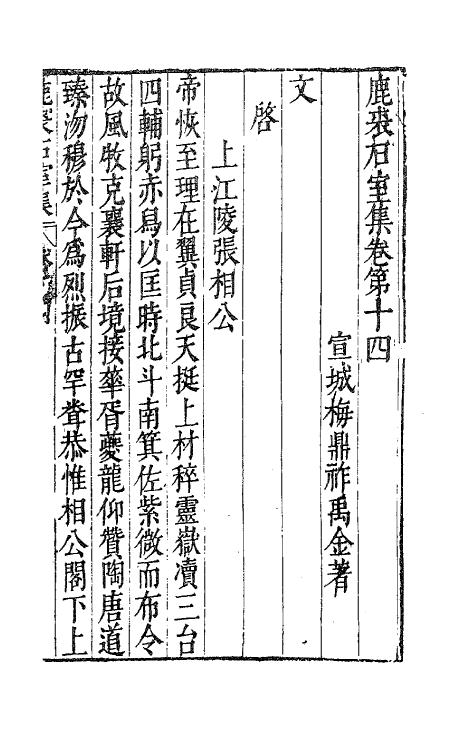 鹿裘石室集卷第十四
宣城梅鼎祚禹金著
文
啓
上江陵張相公
帝恢至理在翼貞良天挺上材稡靈嶽瀆三台
四輔躬赤舄以匡時北斗南箕佐紫微而布令
故風牧克襄軒后境接華胥夔龍仰贊陶唐道
臻沕穆於今爲烈振古罕耷恭惟相公閣下上
鹿裘石室集